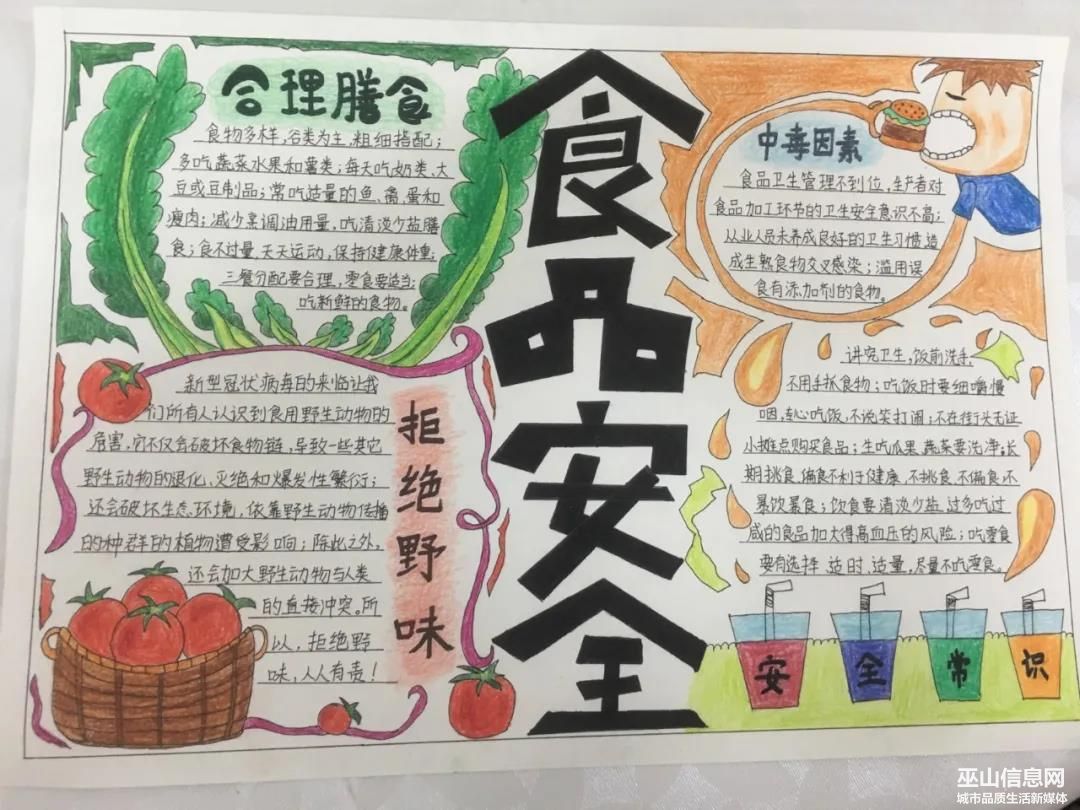 合理膳食
食物多样，谷类为主，粗细搭配；
多吃蔬菜水果和薯类；每天吃奶类、大
豆或豆制品；常吃适量的鱼、禽、蛋和
瘦肉；减少烹调油用量，吃清淡少盐膳
食；食不过量，天天运动，保持健康体重；
三餐分配要合理，零食要适当；
吃新鲜的食物。
食品安全
中毒因素
食品卫生管理不到位，生产者对
食品加工环节的卫生安全意识不高；
从业人员未养成良好的卫生习惯造
成生熟食物交叉感染；滥用误
食有添加剂的食物。
新型冠状病毒的来临让我
们所有人认识到食用野生动物的
危害，它不仅会破坏食物链，导致一些其它
野生动物的退化，灭绝和爆发性繁衍；
还会破坏生态环境，依靠野生动物传播
的种群的植物遭受影响；除此之外，
还会加大野生动物与人类
的直接冲突。所
以，拒绝野
味，人人有责！
拒绝野味
讲究卫生，饭前洗手，
不用手抓食物；吃饭时要细嚼慢
咽，专心吃饭，不说笑打闹；不在街头无证
小摊点购买食品；生吃瓜果、蔬菜要洗净；长
期挑食、偏食不利于健康，不挑食、不偏食，不
暴饮暴食；饮食要清淡少盐，过多吃过
咸的食品加大得高血压的风险；吃零食
要有选择、适时、适量，尽量不吃零食。
安全常识
巫山信息网
城市品质生活新媒体